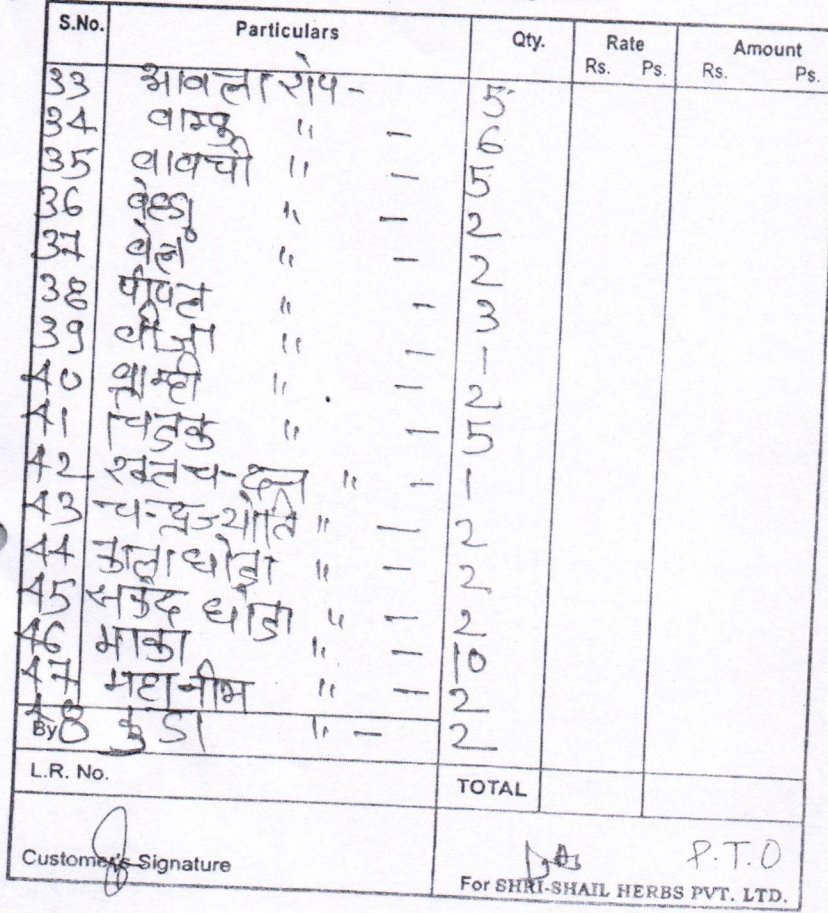 S.No. Particulars Qty. Rate Amount
Rs. Ps. Rs. Ps.
33 आवला रोप - 5
34 वाम्बु " - 6
35 बावची " - 5
36 " - 2
37 बेल " - 2
38 पीपल " - 3
39 बीजा " - 1
40 ब्राम्ही " - 2
41 चित्रक " - 5
42 रक्तचन्दन " - 1
43 चन्द्रज्योति " - 2
44 काला धोत्रा " - 2
45 सफेद धोत्रा " - 2
46 माका " - 10
47 महानीम " - 2
48 कुडा " - 2
By
L.R. No. TOTAL
P.T.O
Customer's Signature
For SHRI-SHAIL HERBS PVT. LTD.